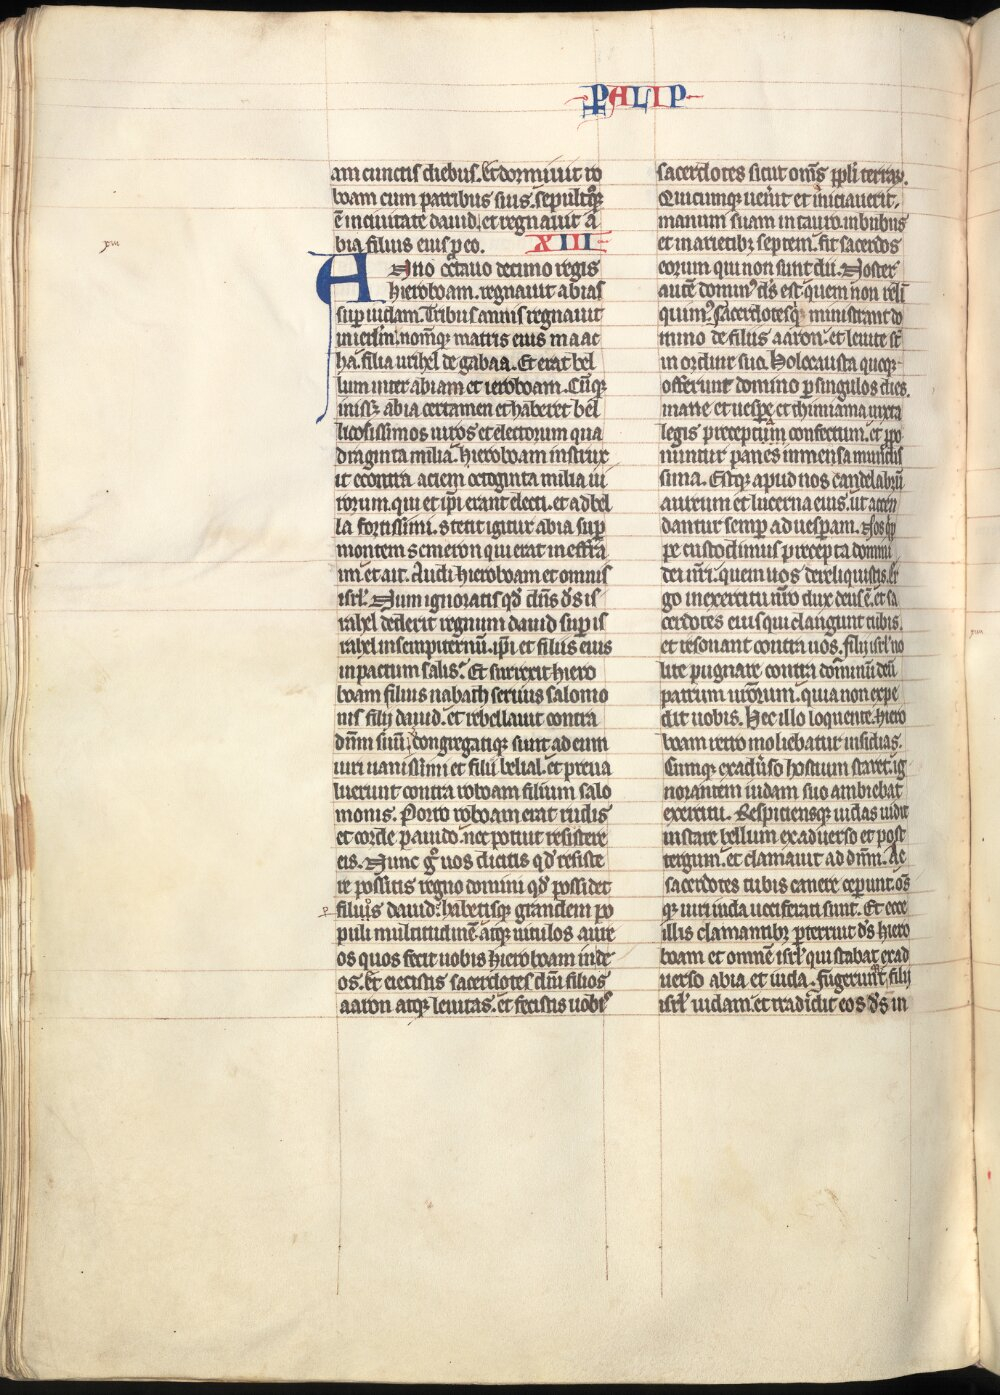 PALIP
am cunctis diebus. Et dormiuit ro
boam cum patribus suis. sepultusq
ē in ciuitate dauid. et regnauit a
bia filius eius p eo. XIII
Anno octauo decimo regis
hieroboam. regnauit abias
sup iudam. Tribus annis regnauit
in ierlm̄. nomq matris eius maac
ha. filia urihel de gabaa. Et erat bel
lum inter abiam et ieroboam. Cūq
inisset abia certamen et haberet bel
licosissimos uiros et electorum qua
draginta milia. hieroboam instrux
it econtra aciem octoginta milia ui
rorum. qui et ipi erant electi. et ad bel
la fortissimi. Stetit igitur abia sup
montem semeron qui erat in effra
im et ait. Audi hieroboam et omnis
isrl. Num ignoratis qd dn̄s ds is
rahel dederit regnum dauid sup is
rahel in sempiternū. ipi et filiis eius
in pactum salis. Et surrexit hiero
boam filius nabath seruus salomo
nis filii dauid. et rebellauit contra
dn̄m suū. congregatiq sunt ad eum
uiri uanissimi et filii belial. et preua
luerunt contra roboam filium salo
monis. Porro roboam erat rudis
et corde pauido. nec potuit resistere
eis. Nunc g uos dicitis qd resiste
re possitis regno domini qd possidet
p filios dauid. habetisq grandem po
puli multitudinē. atq uitulos aure
os quos fecit uobis hieroboam in de
os. Et eiecistis sacerdotes dn̄i filios
aaron atq leuitas. et fecistis uobis
sacerdotes sicut om̄s ppli terrarum.
Quicumq uenit et iniciauerit
manum suam in tauro. in bubus
et in arietibz septem. fit sacerdos
eorum qui non sunt dii. Noster
autē dominus ds est. quem non reli
quimus. Sacerdotesq ministrant do
mino de filiis aaron. et leuite st̄
in ordine suo. Holocausta quoq
offerunt domino p singulos dies.
mane et uespe. et thimiama iuxta
legis preceptum confectum. et ppo
nuntur panes in mensa mundis
sima. Estq apud nos candelabrū
aureum et lucerna eius. ut accen
dantur semp ad uespam. Nos qip
pe custodimus precepta domini
dei nr̄i. quem uos dereliquistis. Er
go in exercitu nr̄o dux deus ē. et sa
cerdotes eius qui clangunt tubis.
et resonant contra uos. filii isrl no
lite pugnare contra dominū deū
patrum ur̄orum. quia non expe
dit uobis. Hec illo loquente. hiero
boam retro moliebatur insidias.
Cumq ex aduso hostium staret. ig
norantem iudam suo ambiebat
exercitu. Respiciensq iudas uidit
instare bellum ex aduerso et post
tergum. et clamauit ad dn̄m. Ac
sacerdotes tubis canere ceperunt. om̄s
q uiri iuda uociferati sunt. Et ecce
illis clamantibz pterruit ds hiero
boam et omnē isrl qui stabat ex ad
uerso abia et iuda. fugeruntq filii
isrl iudam. et tradidit eos ds in